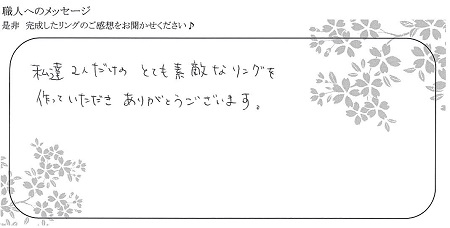 職人へのメッセージ
是非　完成したリングのご感想をお聞かせください♪
私達 2人だけの とても 素敵な リングを
作っていただき ありがとうございます。